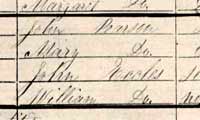 Margaret Do.
John Pearson
Mary Do.
John Eccles
William Do.